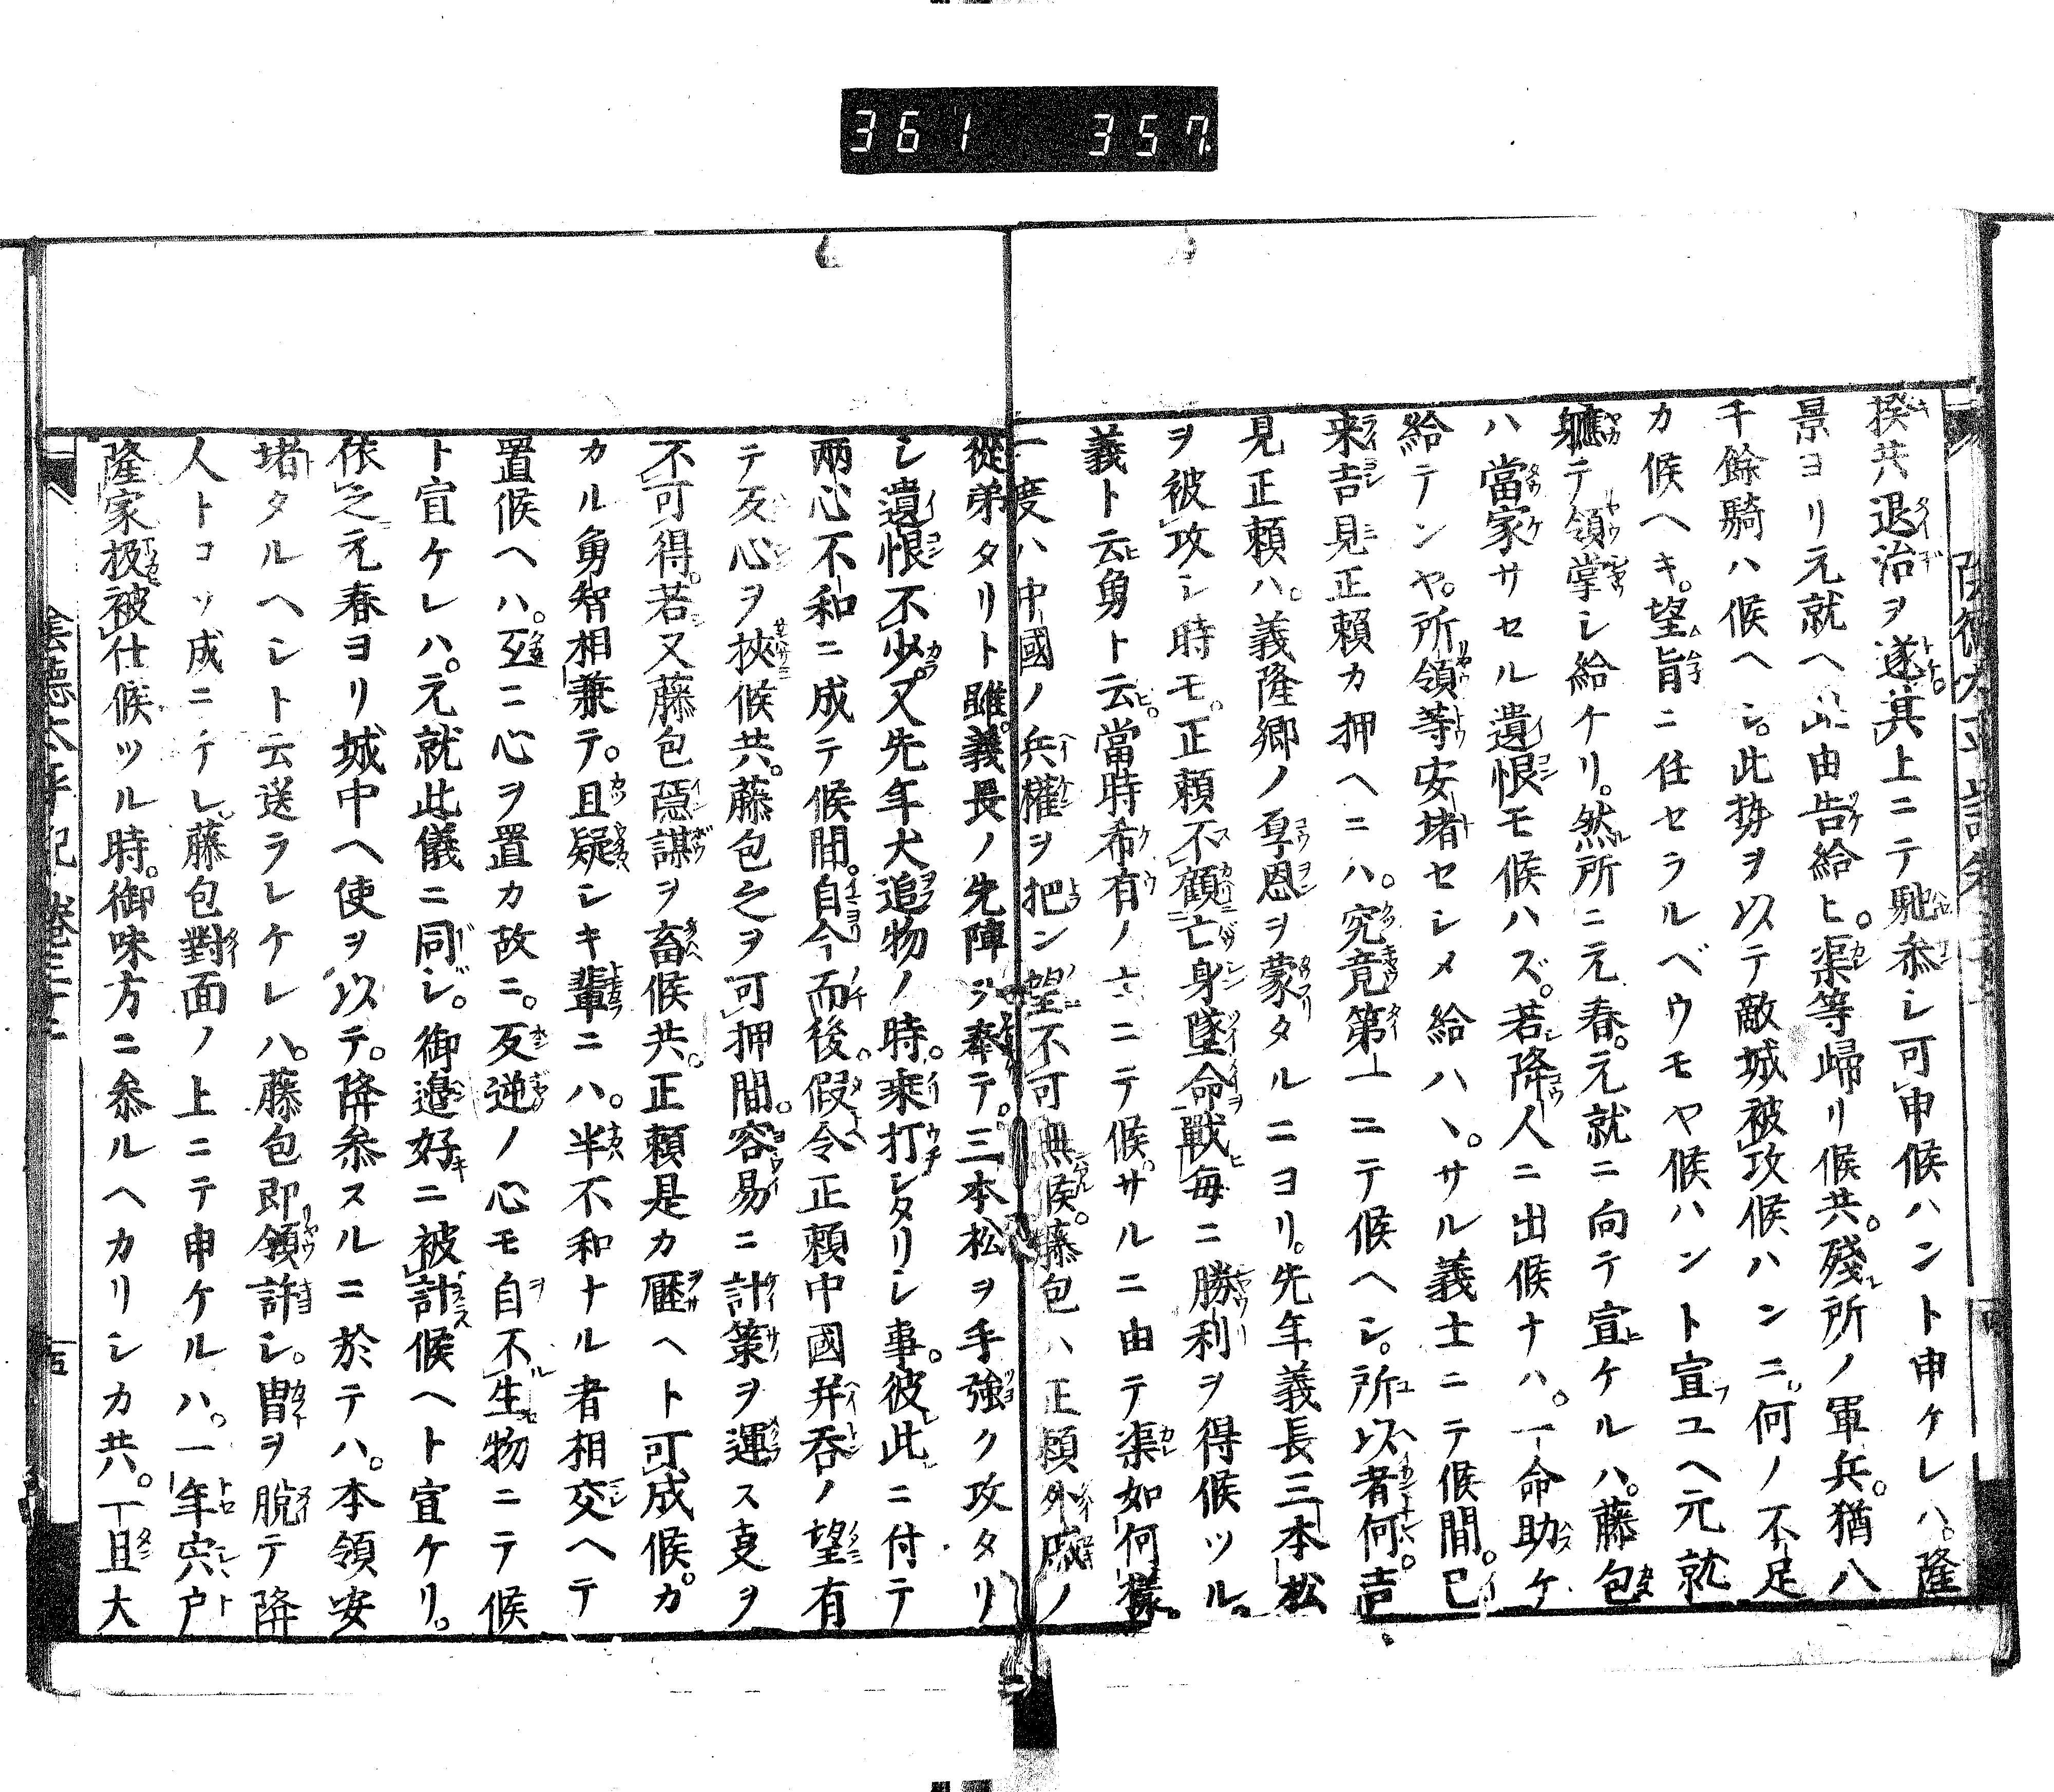 361 357
揆共退治ヲ遂其上ニテ馳参シ可申候ハント申ケレハ。隆
景ヨリ元就ヘ此由告給ヒ。渠等帰リ候共。殘所ノ軍兵。猶八
千餘騎ハ候ヘシ。此勢ヲ以テ敵城被攻候ハンニ。何ノ不足
カ候ヘキ。望旨ニ任セラルベウモヤ候ハント宣ユヘ元就
軈テ領掌シ給ケリ。然所ニ元春。元就ニ向テ宣ケルハ。藤包
ハ當家サセル遺恨モ候ハズ。若降人ニ出候ナハ。一命助ケ
給テンヤ。所領等安堵セシメ給ハヽ。サル義士ニテ候間。已
来吉見正頼カ押ヘニハ。究竟第一ニテ候ヘシ。所以者何。吉
見正頼ハ。義隆卿ノ厚恩ヲ蒙タルニヨリ。先年義長三本松
ヲ被攻シ時モ。正頼不顧亡身墜命戰毎ニ勝利ヲ得候ツル。
義ト云勇ト云。當時希有ノ士ニテ候。サルニ由テ渠如何樣。
一度ハ中國ノ兵權ヲ把ン望不可無候。藤包ハ正頼外戚ノ
從弟タリト雖。義長ノ先陣シ奉テ。三本松ヲ手強ク攻タリ
シ遺恨不少。又先年犬追物ノ時。乗打シタリシ事。彼此ニ付テ
兩心不和ニ成テ候間。自今而後。假令正頼中國并呑ノ望有
テ反心ヲ挾候共。藤包之ヲ可押間。容易ニ計策ヲ運ス叓ヲ
不可得。若又藤包隱謀ヲ畜候共。正頼是カ壓ヘト可成候。カ
カル勇智相兼テ。且疑シキ輩ニハ。半不和ナル者相交ヘテ
置候ヘハ。互ニ心ヲ置カ故ニ。反逆ノ心モ自不生物ニテ候
ト宣ケレハ。元就此儀ニ同ジ。御邊好ニ被計候ヘト宣ケリ。
依之元春ヨリ城中ヘ使ヲ以テ。降参スルニ於テハ。本領安
堵タルヘシト云送ラレケレハ。藤包即領許シ。冑ヲ脱テ降
人トコソ成ニケレ。藤包對面ノ上ニテ申ケルハ。一年宍戸
隆家扱被仕候ツル時。御味方ニ参ルヘカリシカ共。一旦大
陰徳太平記 巻三十